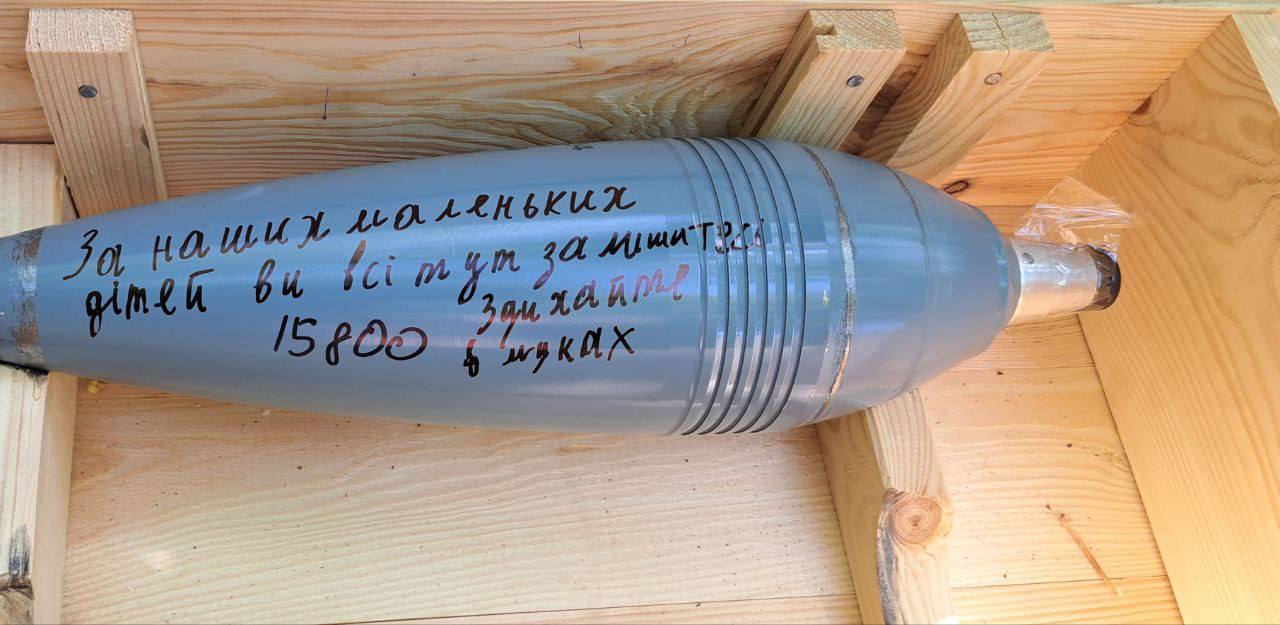 За наших маленьких
дітей ви всі тут залишитесь
Здихайте
15800 в муках